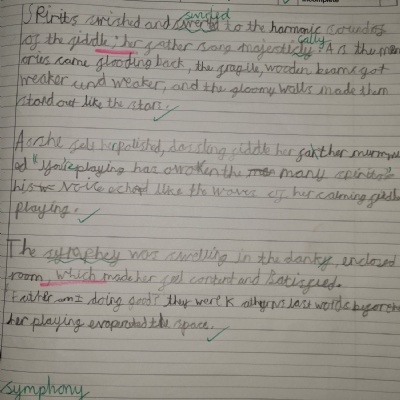 Spirits swished and swirled to the harmonic sounds
of the fiddle; her father sang majestically. As the mem
ories came flooding back, the fragile, wooden beams got
weaker and weaker, and the gloomy walls made them
stand out like the stars.
As she her polished, dazzling fiddle her father murmur
ed "your playing has awoken the many spirits"
his echoed like the waves of her calming
playing.
The symphony was swelling in the dank, enclosed
room, which made her feel content and satisfied.
Father am I doing good? they were last words before
her playing evaporated the space.
symphony